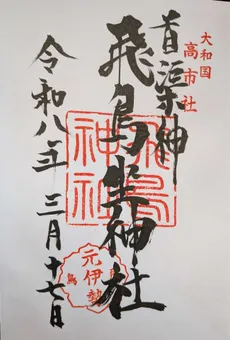 大和国
高市社
首渠神
飛鳥坐神社
飛鳥
神社
元伊勢
令和八年 三月 十七日